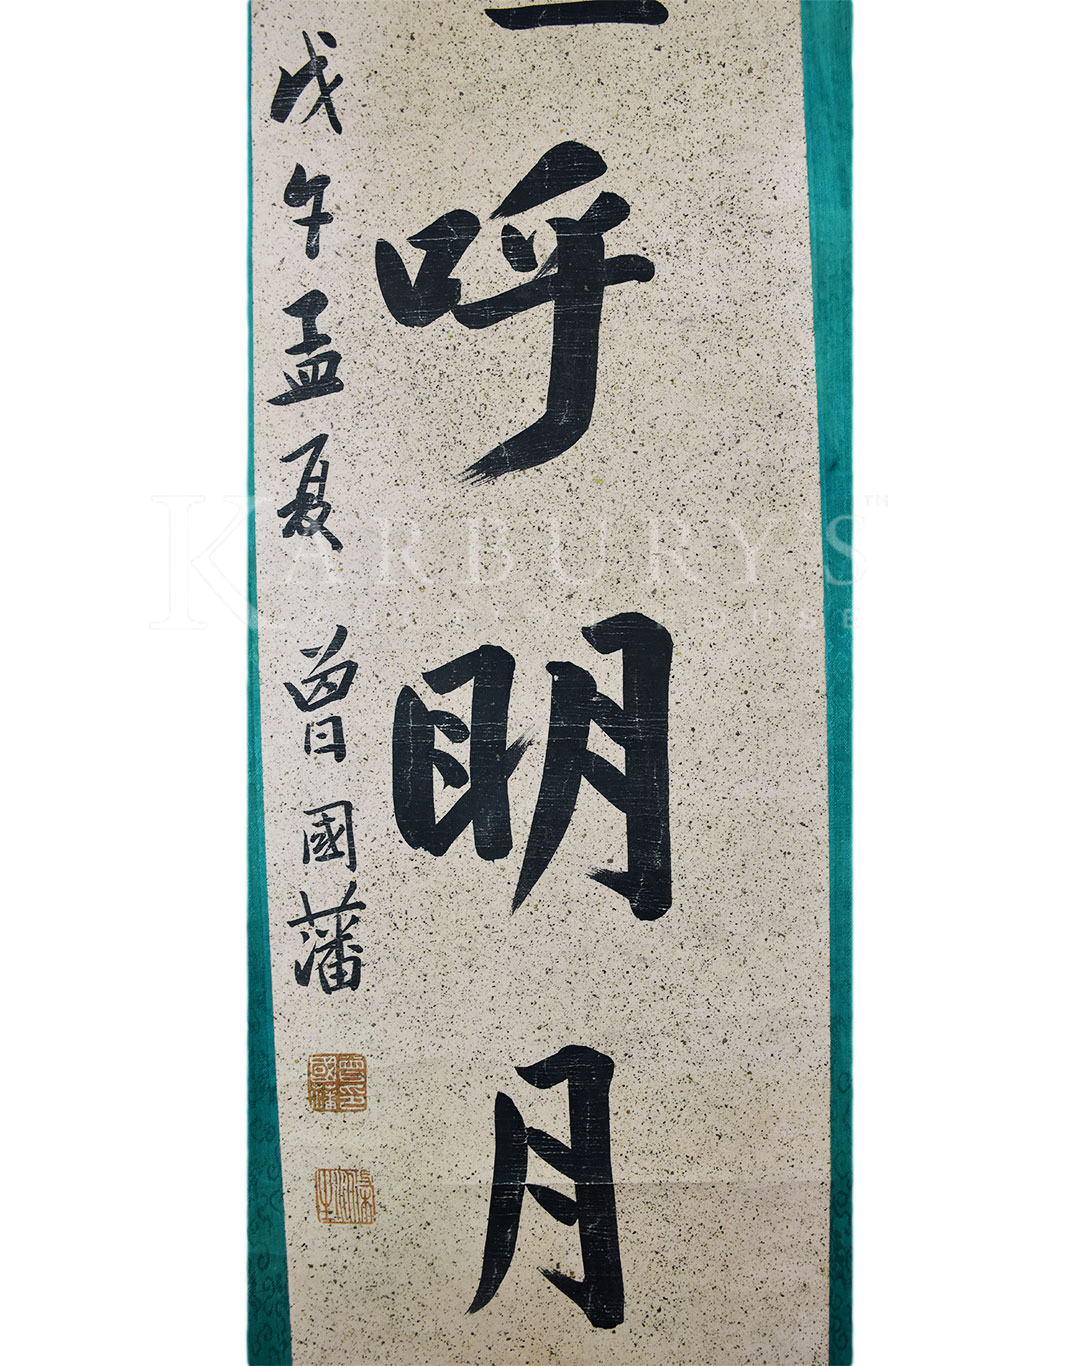 呼明月
戊午孟夏 曾國藩
曾印國藩
KARBURY'S™